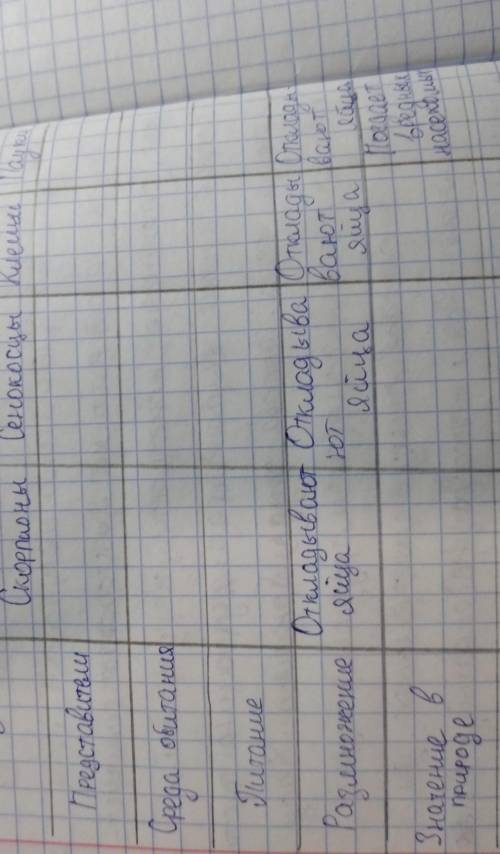 Скорпионы Сенокосцы Клещи Пауки
Представители
Среда обитания
Питание
Размножение Откладывают Откладыва Отклады Отклады
яйца ют яйца вают яйца вают яйца
Значение в Поедает
природе вредных
насекомых